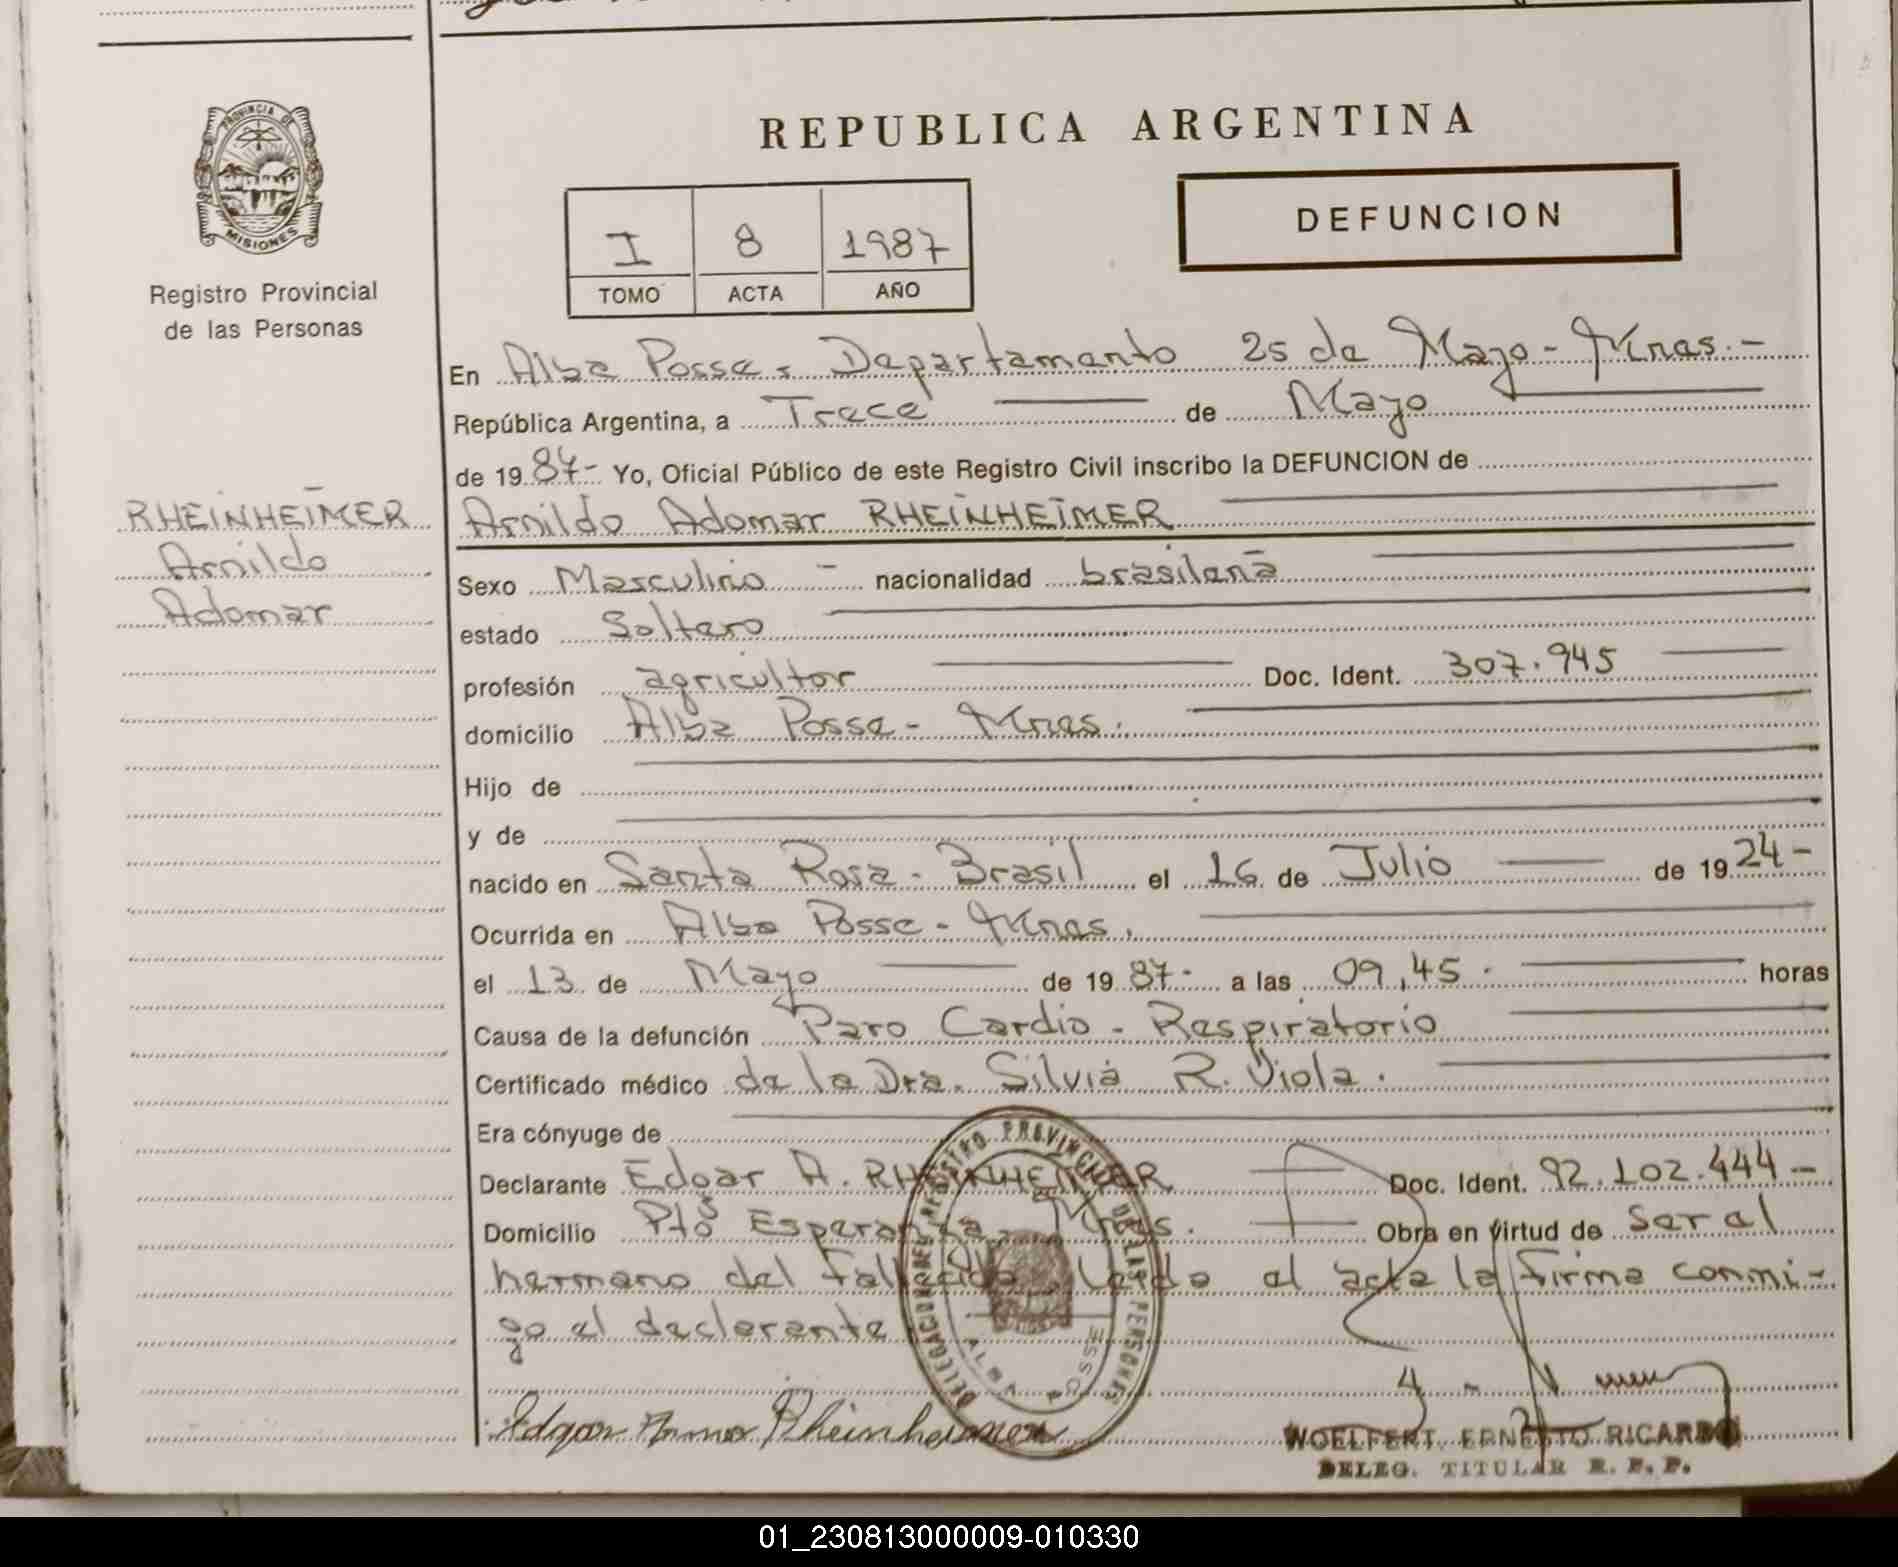 PROVINCIA DE
MISIONES
Registro Provincial
de las Personas
REPUBLICA ARGENTINA
DEFUNCION
I 8 1987
TOMO ACTA AÑO
En Alba Posse, Departamento 25 de Mayo - Mnas. -
República Argentina, a Trece de Mayo
de 1987- Yo, Oficial Público de este Registro Civil inscribo la DEFUNCION de
RHEINHEIMER
Arnildo
Adomar
Arnildo Adomar RHEINHEIMER
Sexo Masculino - nacionalidad brasilana
estado Soltero
profesión agricultor Doc. Ident. 307.945
domicilio Alba Posse - Mnas.
Hijo de
y de
nacido en Santa Rosa - Brasil el 16 de Julio de 1924-
Ocurrida en Alba Posse - Mnas.
el 13 de Mayo de 1987- a las 09,45. horas
Causa de la defunción Paro Cardio - Respiratorio
Certificado médico de la Dra. Silvia R. Viola.
Era cónyuge de
Declarante Edgar A. RHEINHEIMER Doc. Ident. 92.102.444-
Domicilio Pto Esperanza - Mnas. Obra en virtud de ser al
hermano del fallecido. Leida el acta la firma conmi-
go el declarante
DELEGACIONES REGISTRO PROVINCIAL DE LAS PERSONAS
ALBA POSSE
Edgar Armo Rheinheimer
WOELFERT, ERNESTO RICARDO
DELEG. TITULAR R. P. P.
01_230813000009-010330